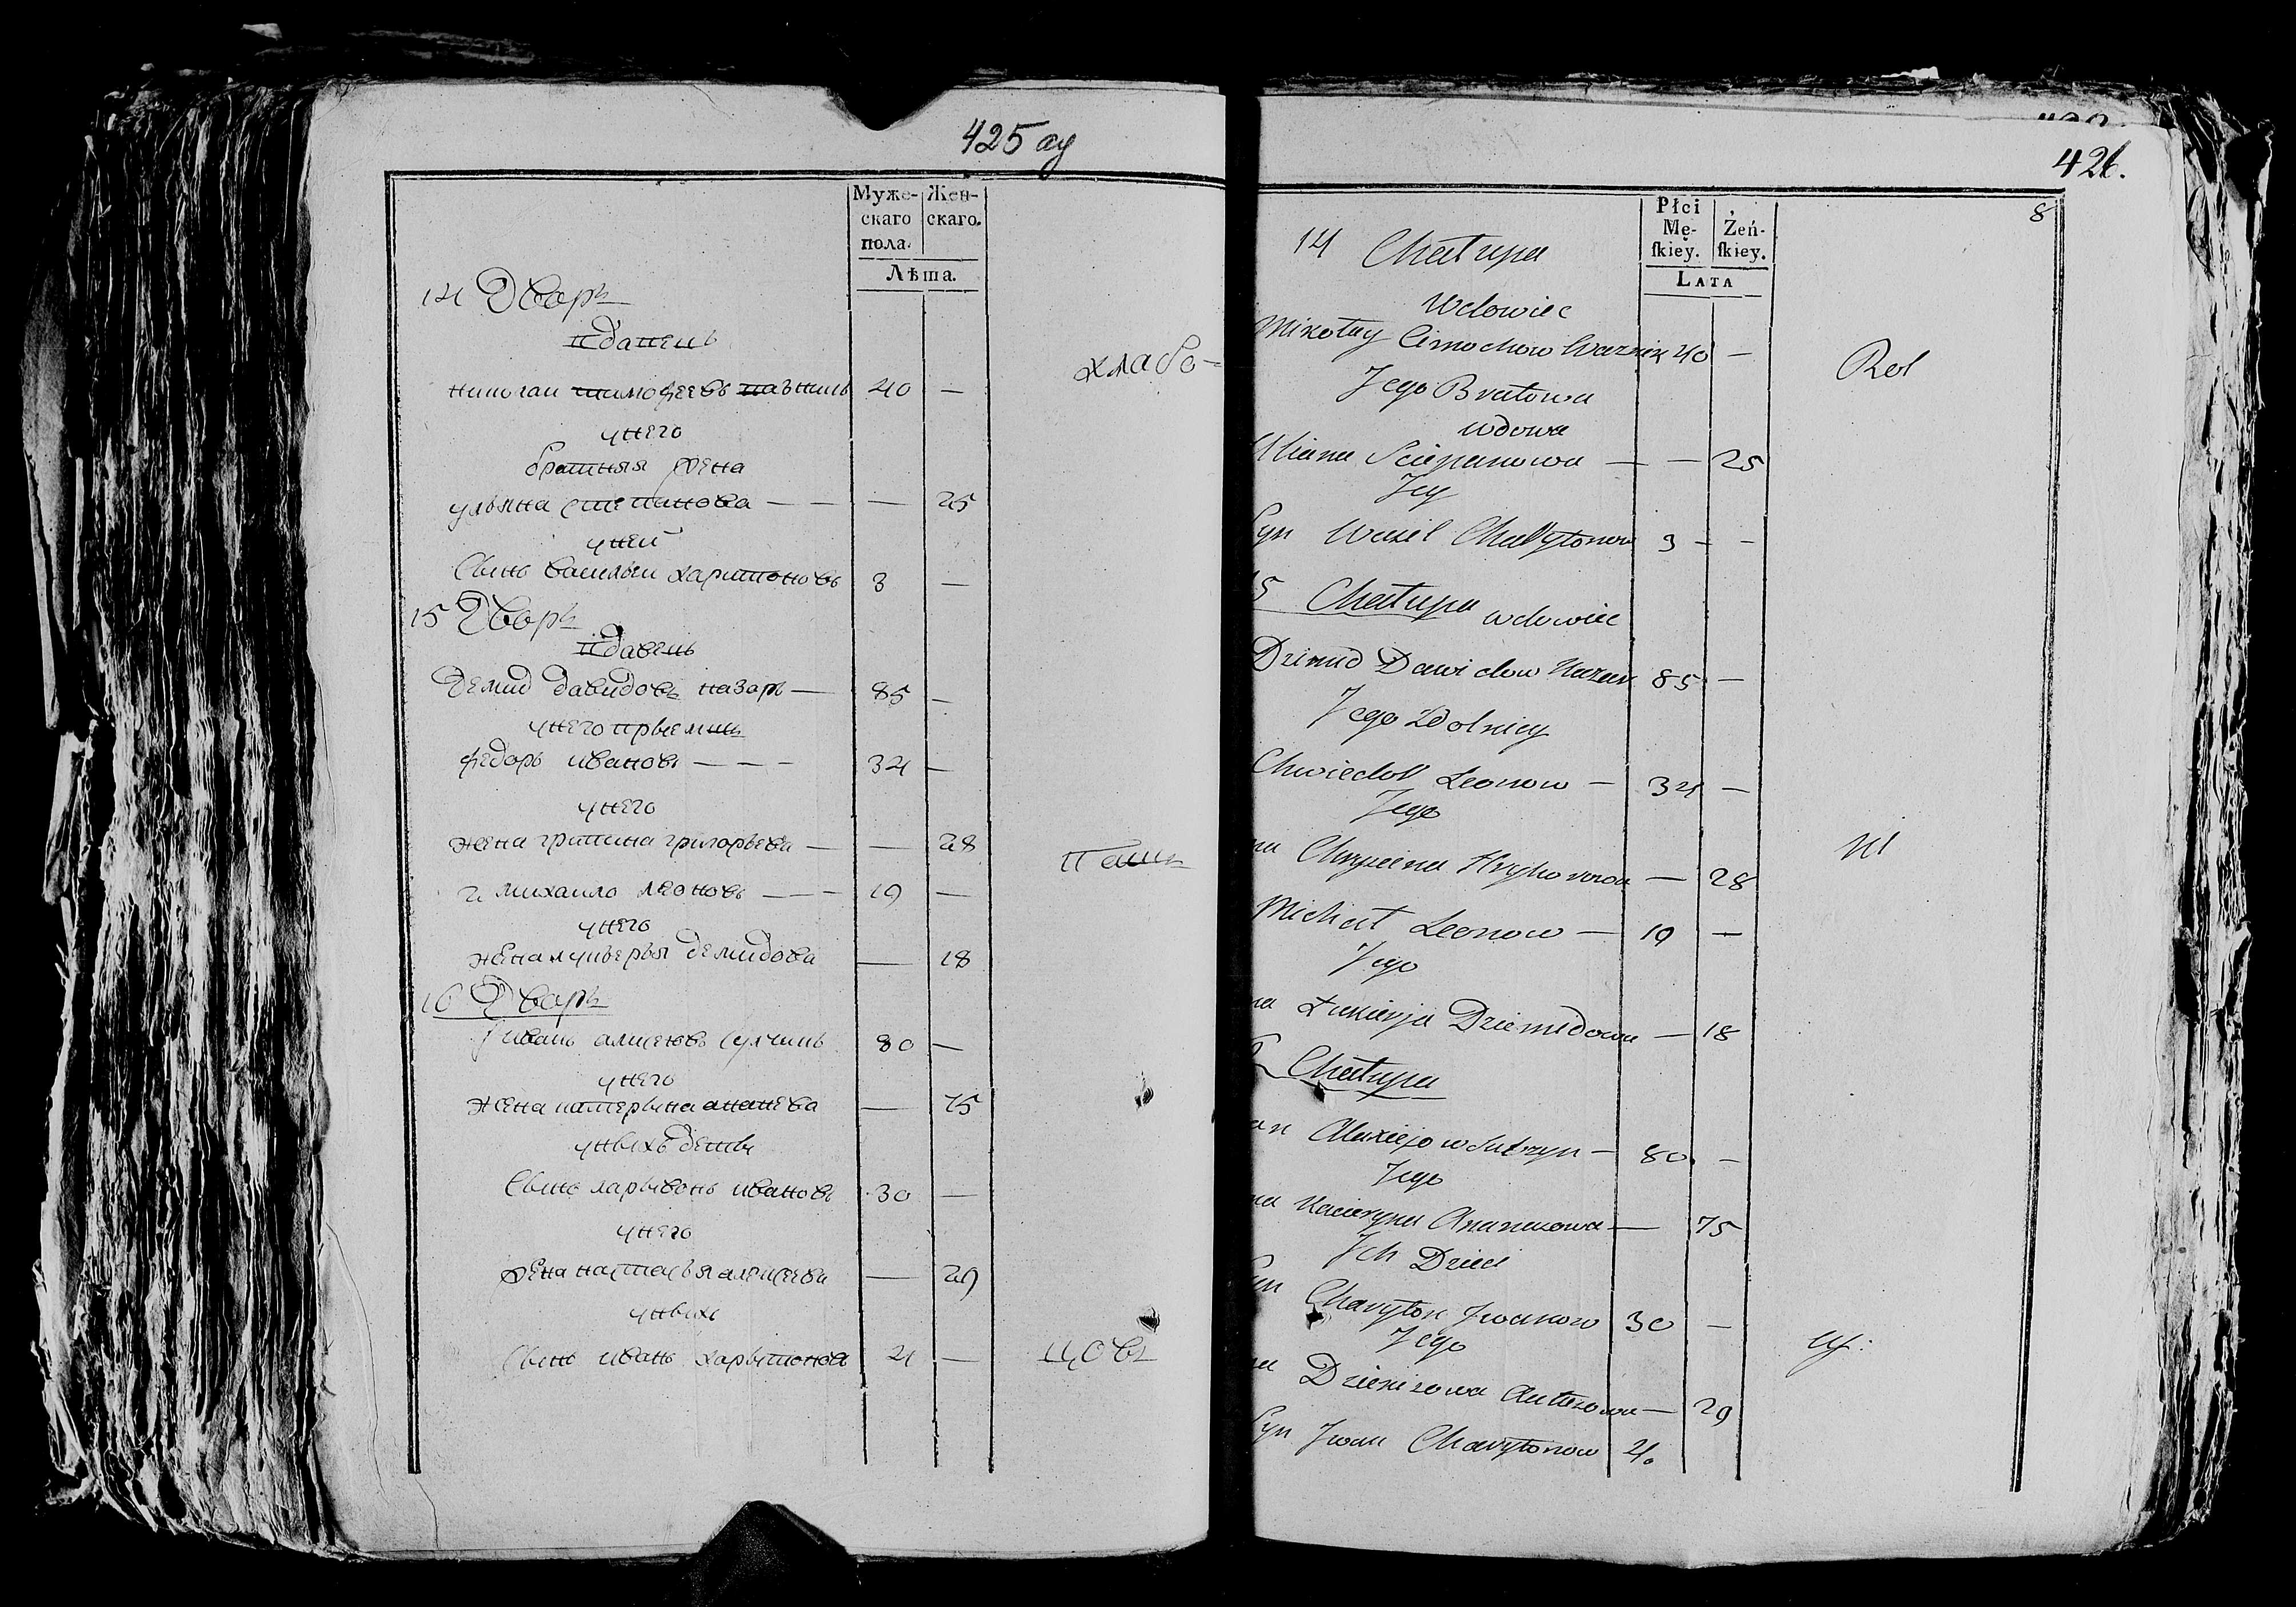 425 ау
Муже-
скаго
пола.
Жен-
скаго.
Лѣта.
14 Дворъ
вдавецъ
николаи тимофеевъ казникъ 40 —
унего
братняя жена
ульяна степанова — — — 25
уней
Сынъ василыи харитоновъ 3 —
хлабо-
15 Дворъ
вдавецъ
Демид давидовъ назаръ — 85 —
унего
федоръ ивановъ — — — 34 —
унего
жена григорьева — — 28
2. михаило леоновъ — — — 19 —
унего
жена лукерья демидова — 18
паш
16 Дворъ
иванъ сулчинъ 80 —
унего
жена катерына ананева — 75
уныхъ дети
Сынъ ларывонъ ивановъ 30 —
унего
жена настасья алексеева — 29
уныхъ
Сынъ иванъ харытонов 4 —
цовъ
426.
8
Płci
Mę-
skiey.
Żeń-
skiey.
LATA
14 Chałupa
Wdowiec
Mikołay Cimochow Kaznik 40 —
Jego Bratowa
wdowa
Uliana Sciepanowa — — 25
Jey
Syn Wasil Charytonow 3 — —
Rol
15 Chałupa wdowiec
Dzimid Dawidow Nazar 85 —
Jego Zdolnicy
Chwiedor Leonow — 34 —
Jego
na Hryhorowa — 28
Michał Leonow — 19 —
Jego
na Łukierja Dziemidowa — 18
ni
Chałupa
an Alexiejow Sulczyn — 80 —
Jego
na Kacieryna Ananiowa — 75
Ich Dzieci
Syn Charyton Jwanow 30 —
Jego
na — 29
Syn Jwan Charytonow 4.
cy: